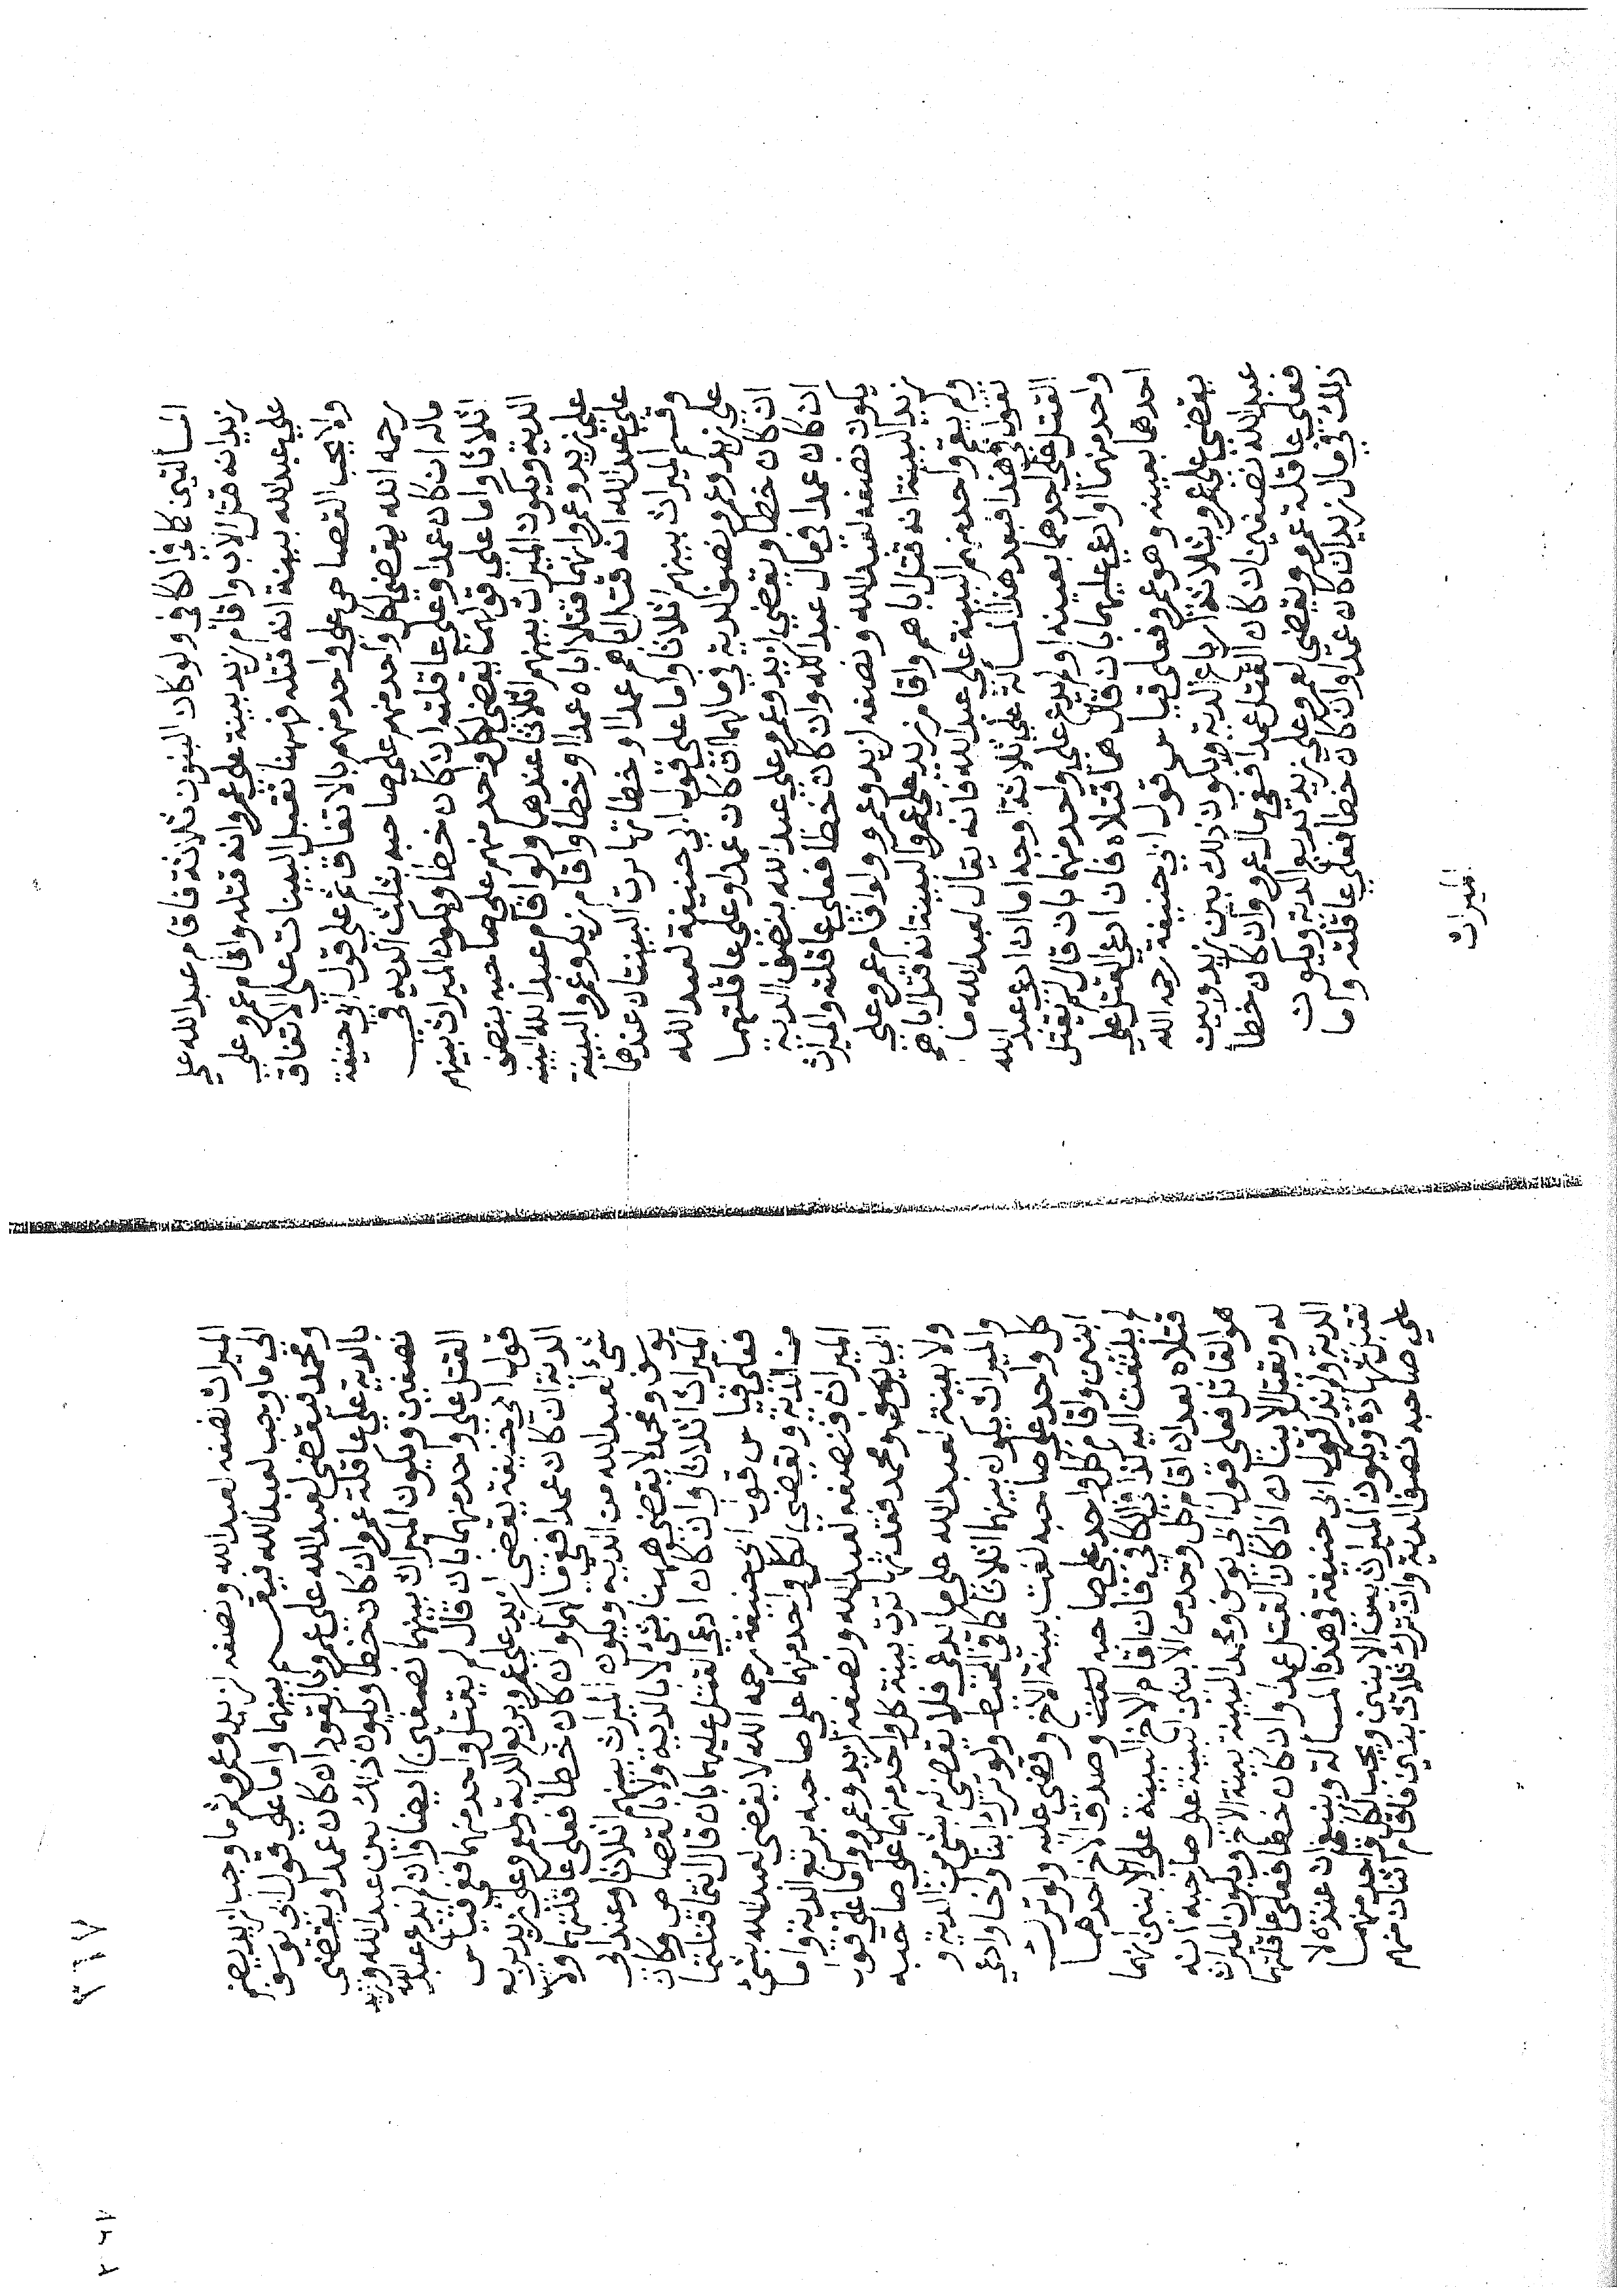 المسألتين كما في الكافي ولو كان البنون ثلاثة فاقام عبد الله علي
زيد انه قتل الاب واقام زيد بينة علي عمرو انه قتله واقام عمرو علي
علي عبد الله بينة انه قتله فههنا تقبل البينات على الاتفاق
ولا يجب القصاص على واحد منهم بالاتفاق ثم على قول ابي حنيفة
رحمه الله يقضى لكل واحد منهم على صاحبه بثلث الدية في
ماله ان كان عمدا وعلى عاقلته ان كان خطا ويكون الميراث بينهم
اثلاثا واما على قولهما يقضى لكل واحد منهم على صاحبه بنصف
الدية ويكون الميراث بينهم اثلاثا عندهما ولو اقام عبد الله البينة
علي زيد وعمرو انهما قتلا اباه عمدا او خطا واقام زيد وعمرو البينة
علي عبد الله انه قتل اباهم عمدا او خطا تهاترت البينتان عندهما
وقسم الميراث بينهم اثلاثا واما على قول ابي حنيفة لعبد الله
على زيد وعمرو نصف الدية في مالهما ان كان عمدا وعلى عاقلتهما
ان كان خطا ويقضي لزيد وعمرو علي عبد الله بنصف الدية
ان كان عمدا في مال عبد الله وان كان خطا فعلى عاقلته والميراث
يكون نصفه لعبد الله ونصفه لزيد وعمرو ولو اقام عمرو علي
زيد البينة انه قتل اباهم واقام زيد علي عمرو البينة انه قتل اباهم
ولم يقم واحد منهم البينة على عبد الله فانه يقال لعبد الله ما
تقول في هذا فبعد هذا المسألة علي ثلاثة اوجه اما ان ادعى عبد الله
القتل على احدهما بعينه او لم يدع على واحد منهما بان قال لم يقتل
واحد منهما او ادعى عليهما بان قال هما قتلاه فان ادعى القتل علي
احدهما بعينه وهو عمرو فعلى قياس قول ابي حنيفة رحمه الله
يقضي على عمرو بثلاثة ارباع الدية ويكون ذلك بين زيد وبين
عبد الله نصفين ان كان القتل عمدا ففي مال عمرو وان كان خطأ
فعلى عاقلة عمرو ويقضى لعمرو على زيد بربع الدية ويكون
ذلك في مال زيد ان كان عمدا وان كان خطا فعلى عاقلته واما
الميراث
الميراث نصفه لعبد الله ونصفه لزيد وعمرو ثم ما وجب لزيد يضم
الى ما وجب لعبد الله فيقسم بينهما واما على قول ابي يوسف
ومحمد فيقضى لعبد الله على عمرو بالقود ان كان عمدا ويقضى
بالدية علي عاقلة عمرو ان كان خطا ويكون ذلك بين عبد الله وزيد
نصفين ويكون الميراث بينهما نصفين ايضا وان لم يدع عبد الله
القتل على واحد منهما بان قال لم يقتل واحد منهما ففي قياس
قول ابي حنيفة يقضى لزيد على عمرو بربع الدية ولعمرو على زيد بربع
الدية ان كان عمدا ففي مالهما وان كان خطا فعلى عاقلتهما ولا
شئ لعبد الله من الدية ويكون الميراث بينهم اثلاثا وعند ابي
يوسف ومحمد لا يقضى ههنا بشئ لا بالدية ولا بالقصاص وكان
الميراث اثلاثا وان كان ادعى القتل عليهما بان قال انتما قتلتما
فعلى قياس قول ابي حنيفة رحمه الله لا يقضى لعبد الله بشئ
من الدية ويقضي لكل واحد منهما على صاحبه بربع الدية واما
الميراث فنصفه لعبد الله ونصفه لزيد وعمرو واما على قول
ابي يوسف ومحمد فقد تهاترت بينة كل واحد منهما على صاحبه
ولا بينة لعبد الله على ما ادعى فلا يقضى له بشئ من الدية و
والميراث يكون بينهما اثلاثا كما في المحيط ولو ترك ابنا واخا وادعى
كل واحد على صاحبه لغت بينة الاخ وقضي عليه ولو ترك
ابنين واقام كل واحد على صاحبه وصدق الاخ احدهما
لم يلتفت اليه كذا في الكافي فان اقام الاخ البينة على الابنين انهما
قتلاه بعد ان اقام كل واحد من الابنين البينة على صاحبه انه
هو القاتل فعلى قول ابي يوسف ومحمد البينة بينة الاخ ويكون الميراث
له ويقتل الابنان اذا كان القتل عمدا وان كان خطا فعلى عاقلتهما
الدية ولم يذكر قول ابي حنيفة في هذه المسألة وينبغي ان عنده لا
تقبل شهادة ويكون الميراث بين الابنين ويجب لكل واحد منهما
على صاحبه نصف الدية وان ترك ثلاث بنين فاقام اثنان منهم